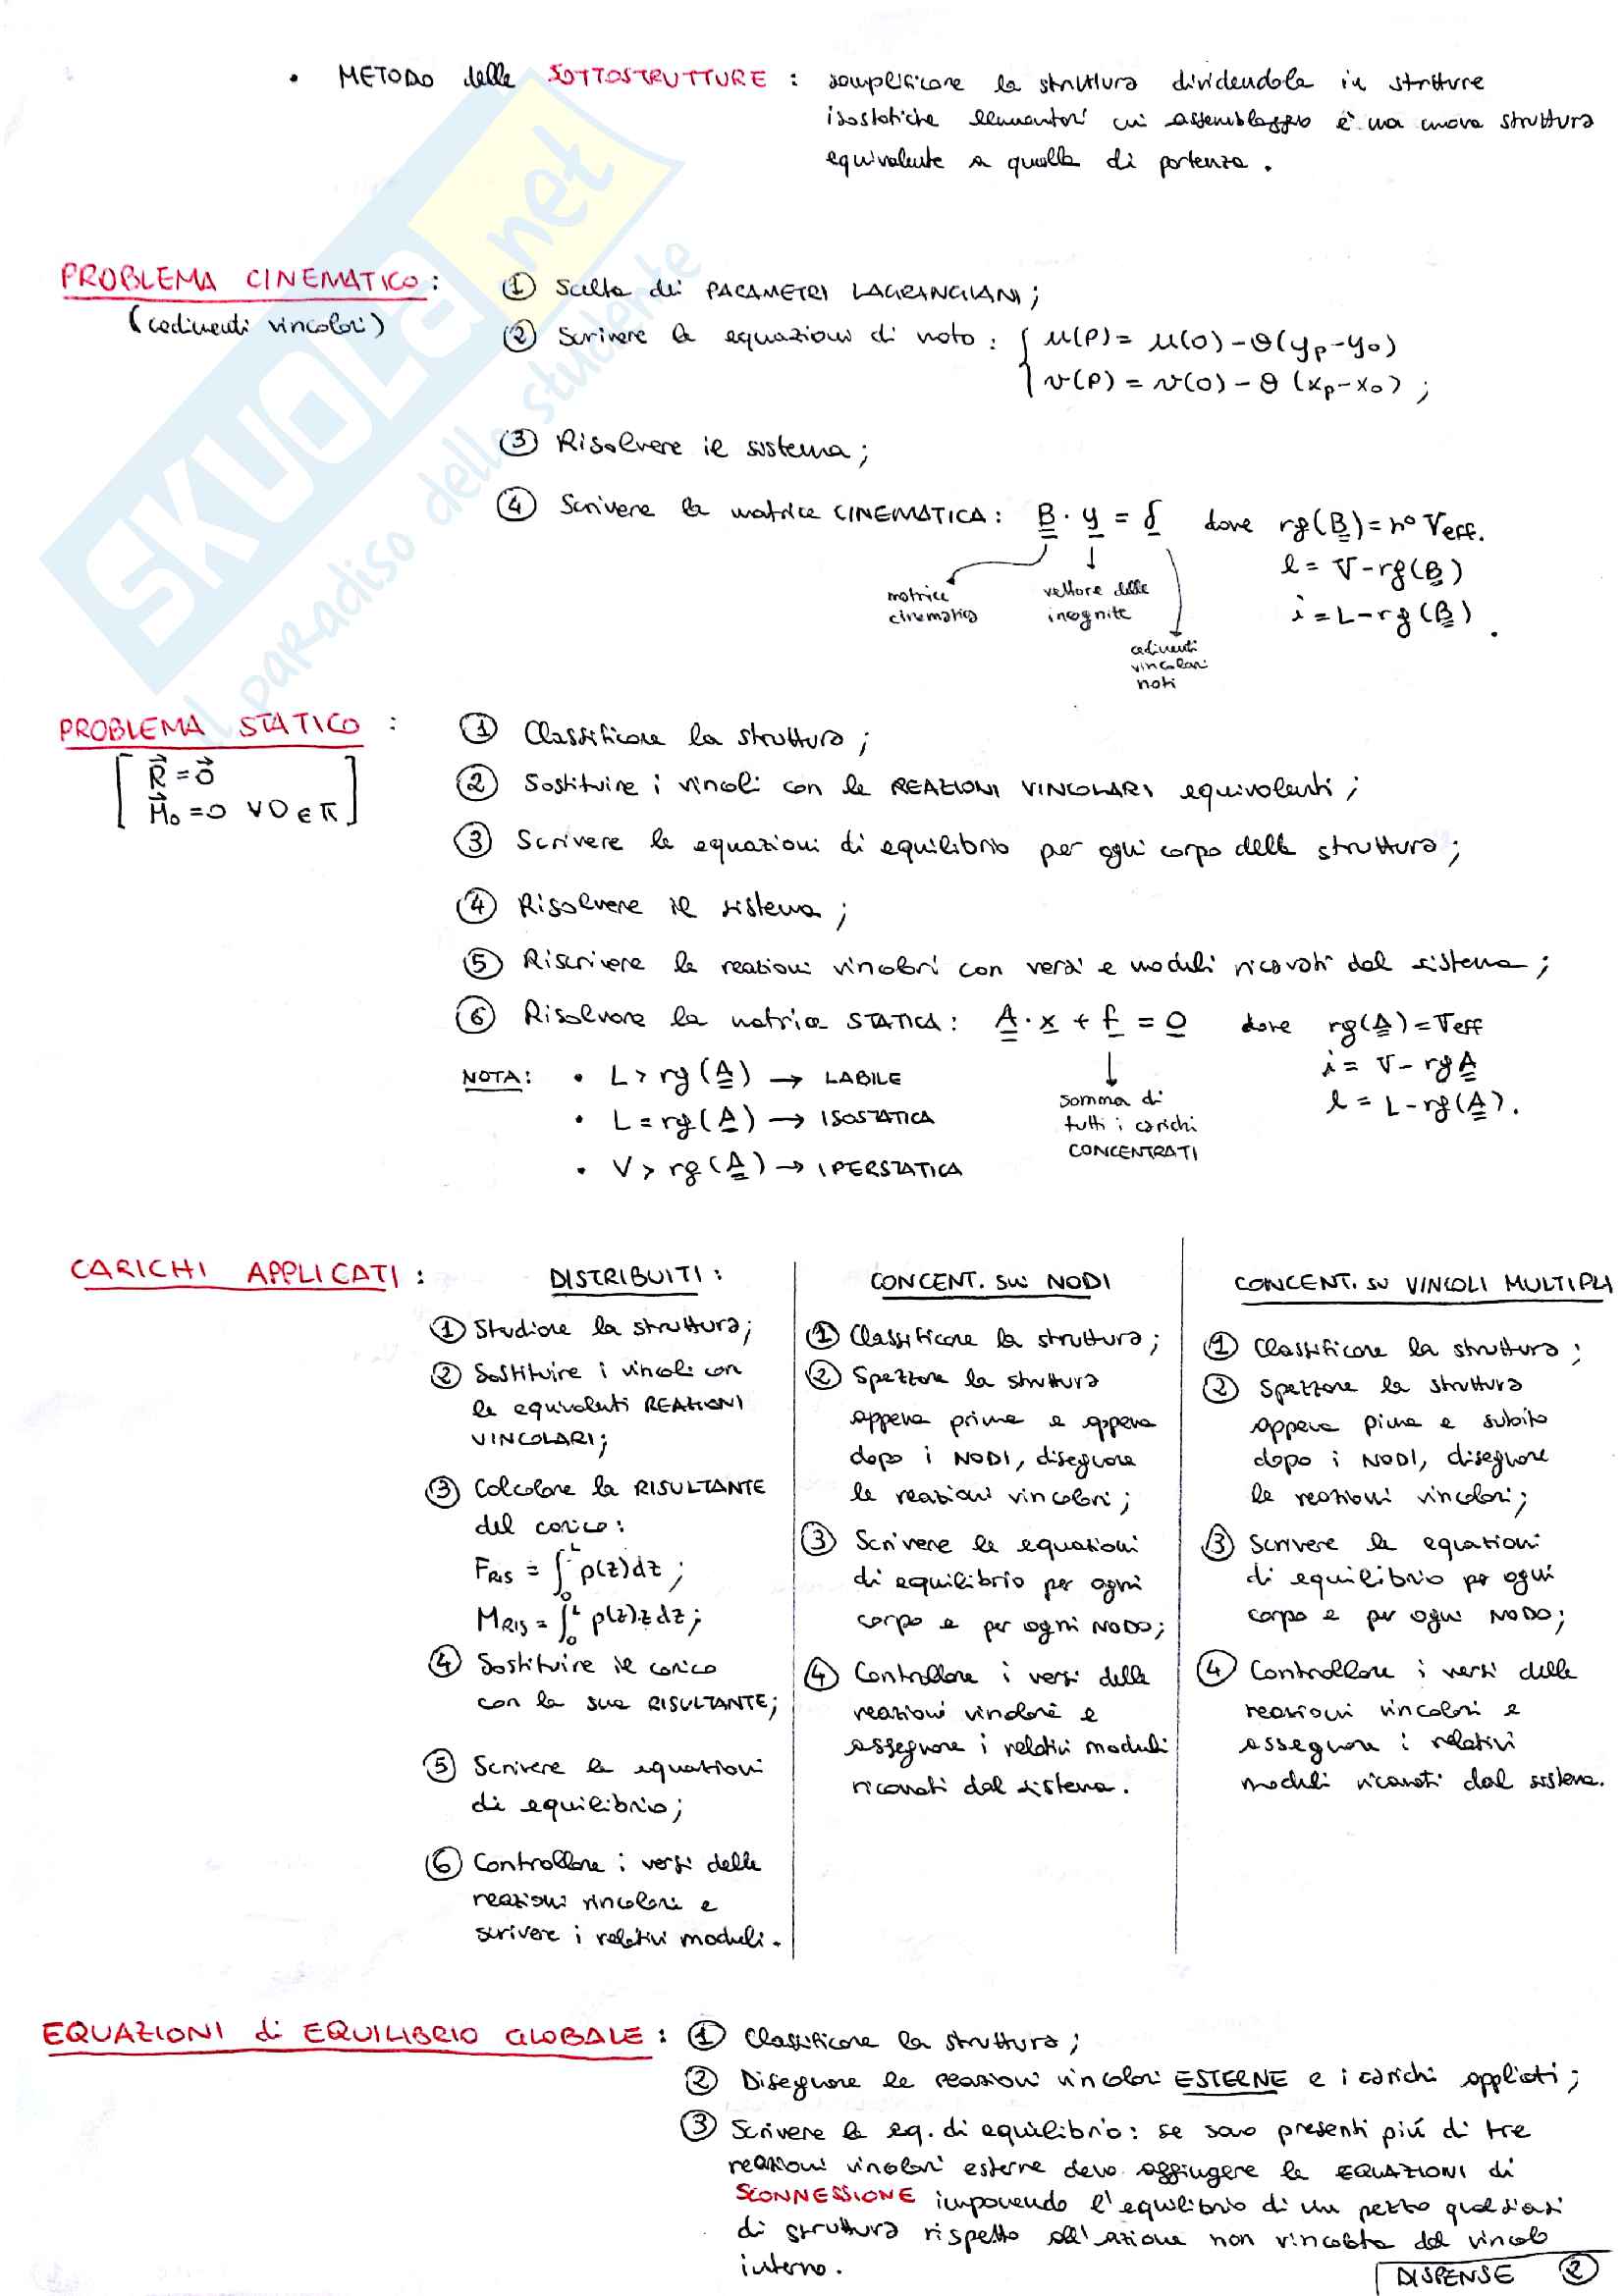 • METODO delle SOTTOSTRUTTURE : semplificare la struttura dividendola in strutture
isostatiche elementari cui assemblaggio è una nuova struttura
equivalente a quella di partenza.
SKUOLA.net
il paradiso dello studente
PROBLEMA CINEMATICO :
(cedimenti vincolari)
① Scelta dei PARAMETRI LAGRANGIANI;
② Scrivere le equazioni di moto : { u(P) = u(O) - θ(yp-yo)
v(P) = v(O) - θ (xp-xo) ;
③ Risolvere il sistema;
④ Scrivere la matrice CINEMATICA: B · y = δ dove rg(B) = n° Veff.
l = V - rg(B)
i = L - rg(B) .
matrice cinematica
vettore delle incognite
cedimenti vincolari noti
PROBLEMA STATICO :
[ R = 0
Mo = 0 ∀ O ∈ π ]
① Classificare la struttura;
② Sostituire i vincoli con le REAZIONI VINCOLARI equivalenti;
③ Scrivere le equazioni di equilibrio per ogni corpo della struttura;
④ Risolvere il sistema;
⑤ Riscrivere le reazioni vincolari con versi e moduli ricavati dal sistema;
⑥ Risolvere la matrice STATICA: A · x + f = 0 dove rg(A) = Veff
i = V - rg A
l = L - rg(A).
somma di
tutti i carichi
CONCENTRATI
NOTA: • L > rg (A) → LABILE
• L = rg (A) → ISOSTATICA
• V > rg (A) → IPERSTATICA
CARICHI APPLICATI :
DISTRIBUITI :
① Studiare la struttura;
② Sostituire i vincoli con
le equivalenti REAZIONI
VINCOLARI;
③ Calcolare la RISULTANTE
del carico:
FRIS = ∫₀ᴸ p(z)dz ;
MRIS = ∫₀ᴸ p(z)·z dz;
④ Sostituire il carico
con la sua RISULTANTE;
⑤ Scrivere le equazioni
di equilibrio;
⑥ Controllare i versi delle
reazioni vincolari e
scrivere i relativi moduli.
CONCENT. sui NODI
① Classificare la struttura;
② Spezzare la struttura
appena prima e appena
dopo i NODI, disegnare
le reazioni vincolari;
③ Scrivere le equazioni
di equilibrio per ogni
corpo e per ogni NODO;
④ Controllare i versi delle
reazioni vincolari e
assegnare i relativi moduli
ricavati dal sistema.
CONCENT. su VINCOLI MULTIPLI
① Classificare la struttura;
② Spezzare la struttura
appena prima e subito
dopo i NODI, disegnare
le reazioni vincolari;
③ Scrivere le equazioni
di equilibrio per ogni
corpo e per ogni NODO;
④ Controllare i versi delle
reazioni vincolari e
assegnare i relativi
moduli ricavati dal sistema.
EQUAZIONI di EQUILIBRIO GLOBALE : ① Classificare la struttura;
② Disegnare le reazioni vincolari ESTERNE e i carichi applicati;
③ Scrivere le eq. di equilibrio: se sono presenti più di tre
reazioni vincolari esterne devo aggiungere le EQUAZIONI di
SCONNESSIONE imponendo l'equilibrio di un pezzo qualsiasi
di struttura rispetto all'azione non vincolata dal vincolo
interno.
DISPENSE ②